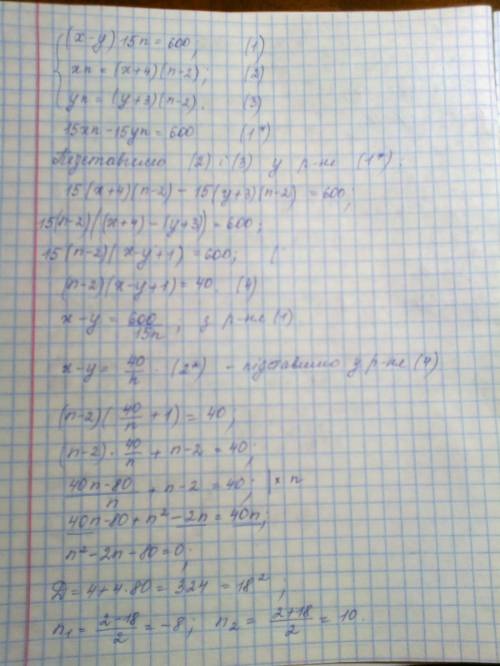 (x-y) 15n = 600; (1)
xn = (x+4)(n-2); (2)
yn = (y+3)(n-2). (3)
15xn - 15yn = 600 (1*)
Підставимо (2) і (3) у р-не (1*).
15(x+4)(n-2) - 15(y+3)(n-2) = 600;
15(n-2)((x+4) - (y+3)) = 600;
15(n-2)(x-y+1) = 600; (
(n-2)(x-y+1) = 40. (4)
x-y = 600/15n ; з р-не (1)
x-y = 40/n . (2*) - підставимо у р-не (4)
(n-2)(40/n + 1) = 40;
(n-2)·40/n + n-2 = 40;
40n-80/n + n-2 = 40; | × n
40n-80+n²-2n = 40n;
n²-2n-80=0;
D = 4+4·80 = 324 = 18²;
n₁ = 2-18/2 = -8; n₂ = 2+18/2 = 10.